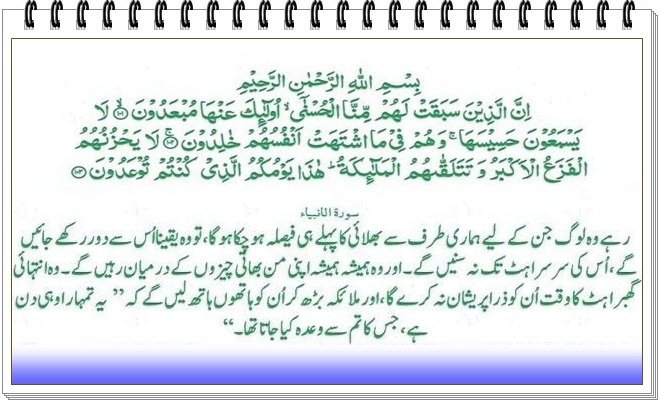 بِسْمِ اللهِ الرَّحْمٰنِ الرَّحِيْمِ
اِنَّ الَّذِيْنَ سَبَقَتْ لَهُمْ مِّنَّا الْحُسْنٰٓى ۙ اُولٰٓئِكَ عَنْهَا مُبْعَدُوْنَ ۙ﴿۱۰۱﴾ لَا
يَسْمَعُوْنَ حَسِيْسَهَا ۚ وَهُمْ فِيْ مَا اشْتَهَتْ اَنْفُسُهُمْ خٰلِدُوْنَ ۚ﴿۱۰۲﴾ لَا يَحْزُنُهُمُ
الْفَزَعُ الْاَكْبَرُ وَتَتَلَقّٰىهُمُ الْمَلٰٓئِكَةُ ؕ هٰذَا يَوْمُكُمُ الَّذِيْ كُنْتُمْ تُوْعَدُوْنَ ﴿۱۰۳﴾
سورۃ الانبیاء
رہے وہ لوگ جن کے لیے ہماری طرف سے بھلائی کا پہلے ہی فیصلہ ہو چکا ہو گا، تو وہ یقیناً اُس سے دور رکھے جائیں
گے، اُس کی سرسراہٹ تک نہ سنیں گے۔ اور وہ ہمیشہ ہمیشہ اپنی من بھاتی چیزوں کے درمیان رہیں گے۔ وہ انتہائی
گھبراہٹ کا وقت اُن کو ذرا پریشان نہ کرے گا، اور ملائکہ بڑھ کر اُن کو ہاتھوں ہاتھ لیں گے کہ ”یہ تمہارا وہی دن
ہے، جس کا تم سے وعدہ کیا جاتا تھا۔“